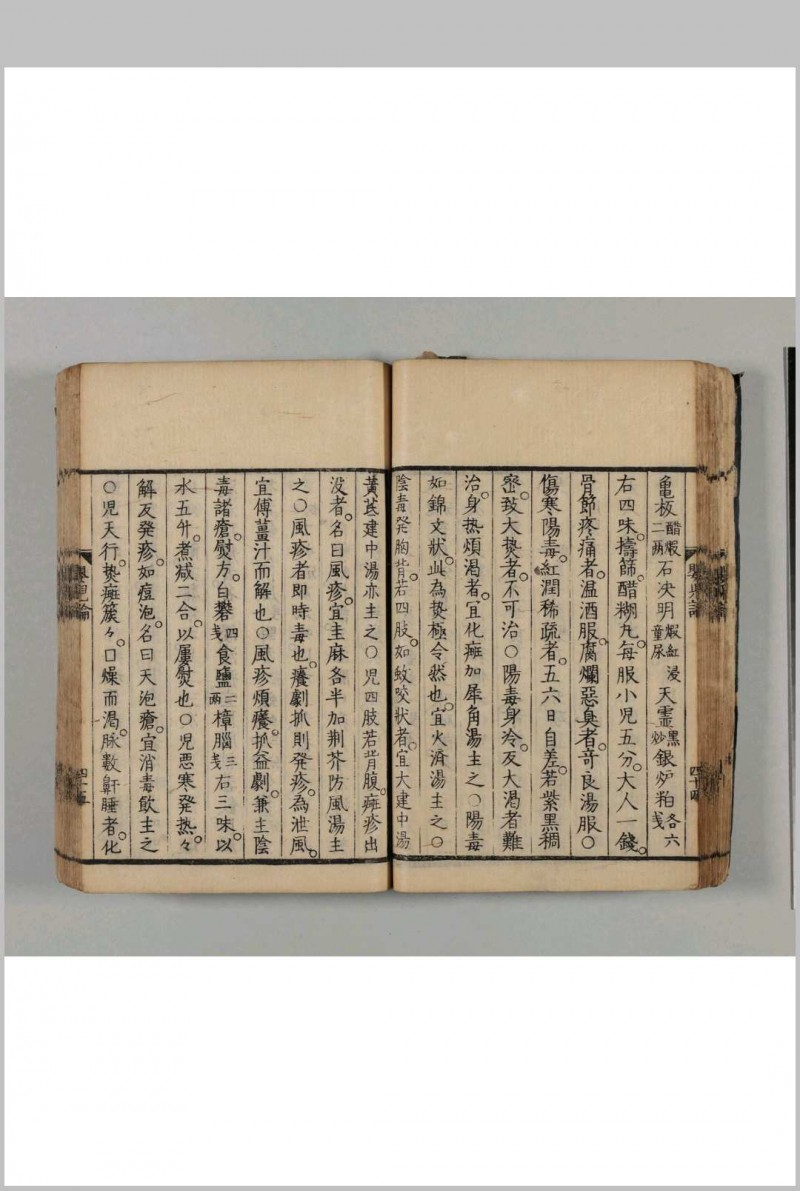 亀板醋煆二兩石决明煆紅童尿浸天霊黒炒銀炉粕各六戔
右四味擣篩醋糊丸毎服小児五分。大人一錢。
骨節疼痛者。温酒服。腐爛惡臭者。竒良湯服〇
傷寒陽毒。紅潤稀疏者。五六日自差。若紫黒稠
宻。致大𤍠者。不可治〇陽毒身冷。反大渇者難
治。身热煩渇者。宜化癍加犀角湯主之〇陽毒
如錦文状。此為𤍠極令然也。宜火済湯主之〇
陰毒発胸背。若四肢。如蚊咬状者。宜大建中湯
黄芪建中湯亦主之〇児四肢若背腹。癍疹出
没者。名曰風疹。宜圭麻各半加荆芥防風湯主
之〇風疹者即時毒也。癢劇抓則発疹。為泄風。
宜傅薑汁而解也〇風疹煩癢。抓益劇。兼主陰
毒諸瘡。熨方。白礬四戔食鹽二兩樟腦三戔右三味。以
水五升。煮减二合。以屢熨也〇児悪寒発热々
解反発疹。如痘泡。名曰天泡瘡。宜消毒飲主之
〇児天行𤍠癍簇々。口燥而渇。脉數鼾睡者。化